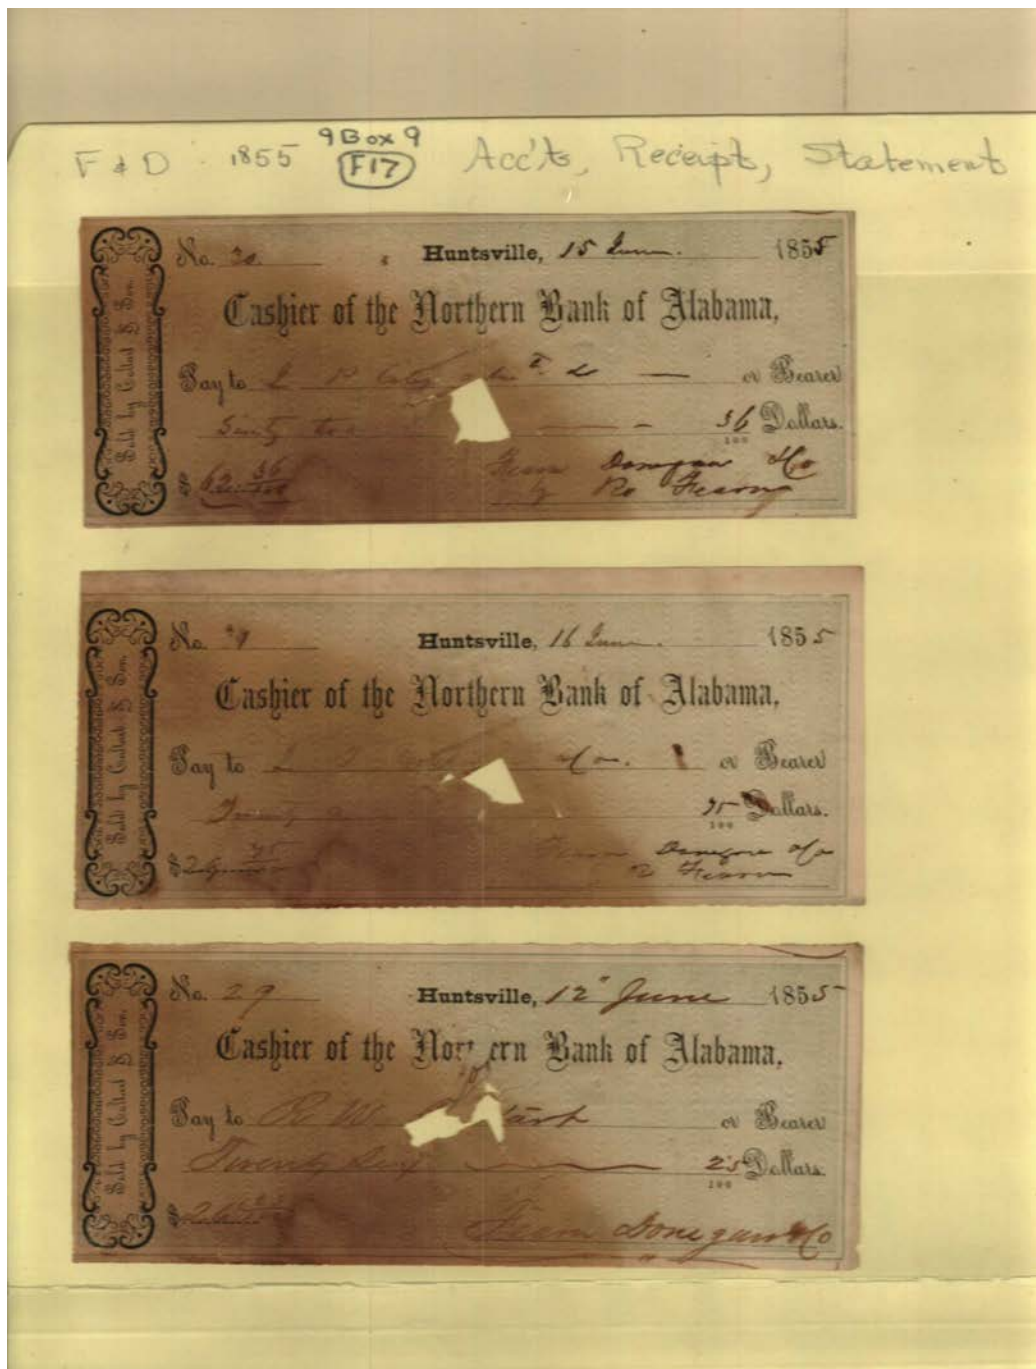 F & D 1855 9 Box 9 Acc'ts, Receipt, Statement
F17
Sold by Coltart & Son.
No. 30 Huntsville, 15 June. 1855
Cashier of the Northern Bank of Alabama,
Pay to or Bearer
Sixty two 36/100 Dollars.
$62 36/100 Fearn Donegan & Co
by Ro Fearn
Sold by Coltart & Son.
No. Huntsville, 16 June. 1855
Cashier of the Northern Bank of Alabama,
Pay to & Co. or Bearer
Twenty /100 Dollars.
Fearn Donegan & Co
R Fearn
Sold by Coltart & Son.
No. 29 Huntsville, 12" June 1855
Cashier of the Nor ern Bank of Alabama,
Pay to R W or Bearer
Twenty Six 25/100 Dollars.
$26 25/100 Fearn Donegan & Co